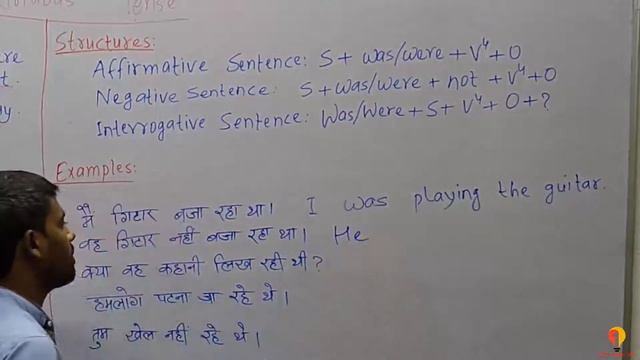 Tense
Structures:
Affirmative Sentence: S + was/were + V⁴ + O
Negative Sentence: S + was/were + not + V⁴ + O
Interrogative Sentence: Was/Were + S + V⁴ + O + ?
Examples:
मैं गिटार बजा रहा था। I was playing the guitar.
वह गिटार नहीं बजा रहा था। He
क्या वह कहानी लिख रही थी ?
हमलोग पटना जा रहे थे।
तुम खेल नहीं रहे थे।